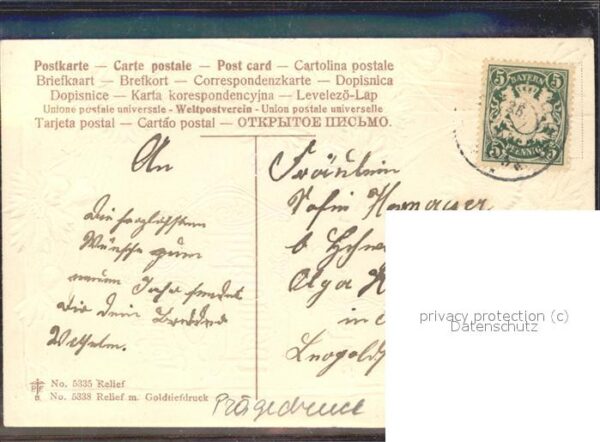 Postkarte — Carte postale — Post card — Cartolina postale
Briefkaart — Brefkort — Correspondenzkarte — Dopisnica
Dopisnice — Karta korespondencyjna — Levelező-Lap
Unione postale universale - Weltpostverein - Union postale universelle
Tarjeta postal — Cartão postal — ОТКРЫТОЕ ПИСЬМО.
BAYERN
5 5
5 PFENNIG 5
An
Fräulein
Sofie
b.
Olga
in
Die herzlichsten
Wünsche zum
neuen Jahr sendet
Dir dein Bruder
Wilhelm.
privacy protection (c)
Datenschutz
No. 5335 Relief
No. 5338 Relief m. Goldtiefdruck
Prägedruck